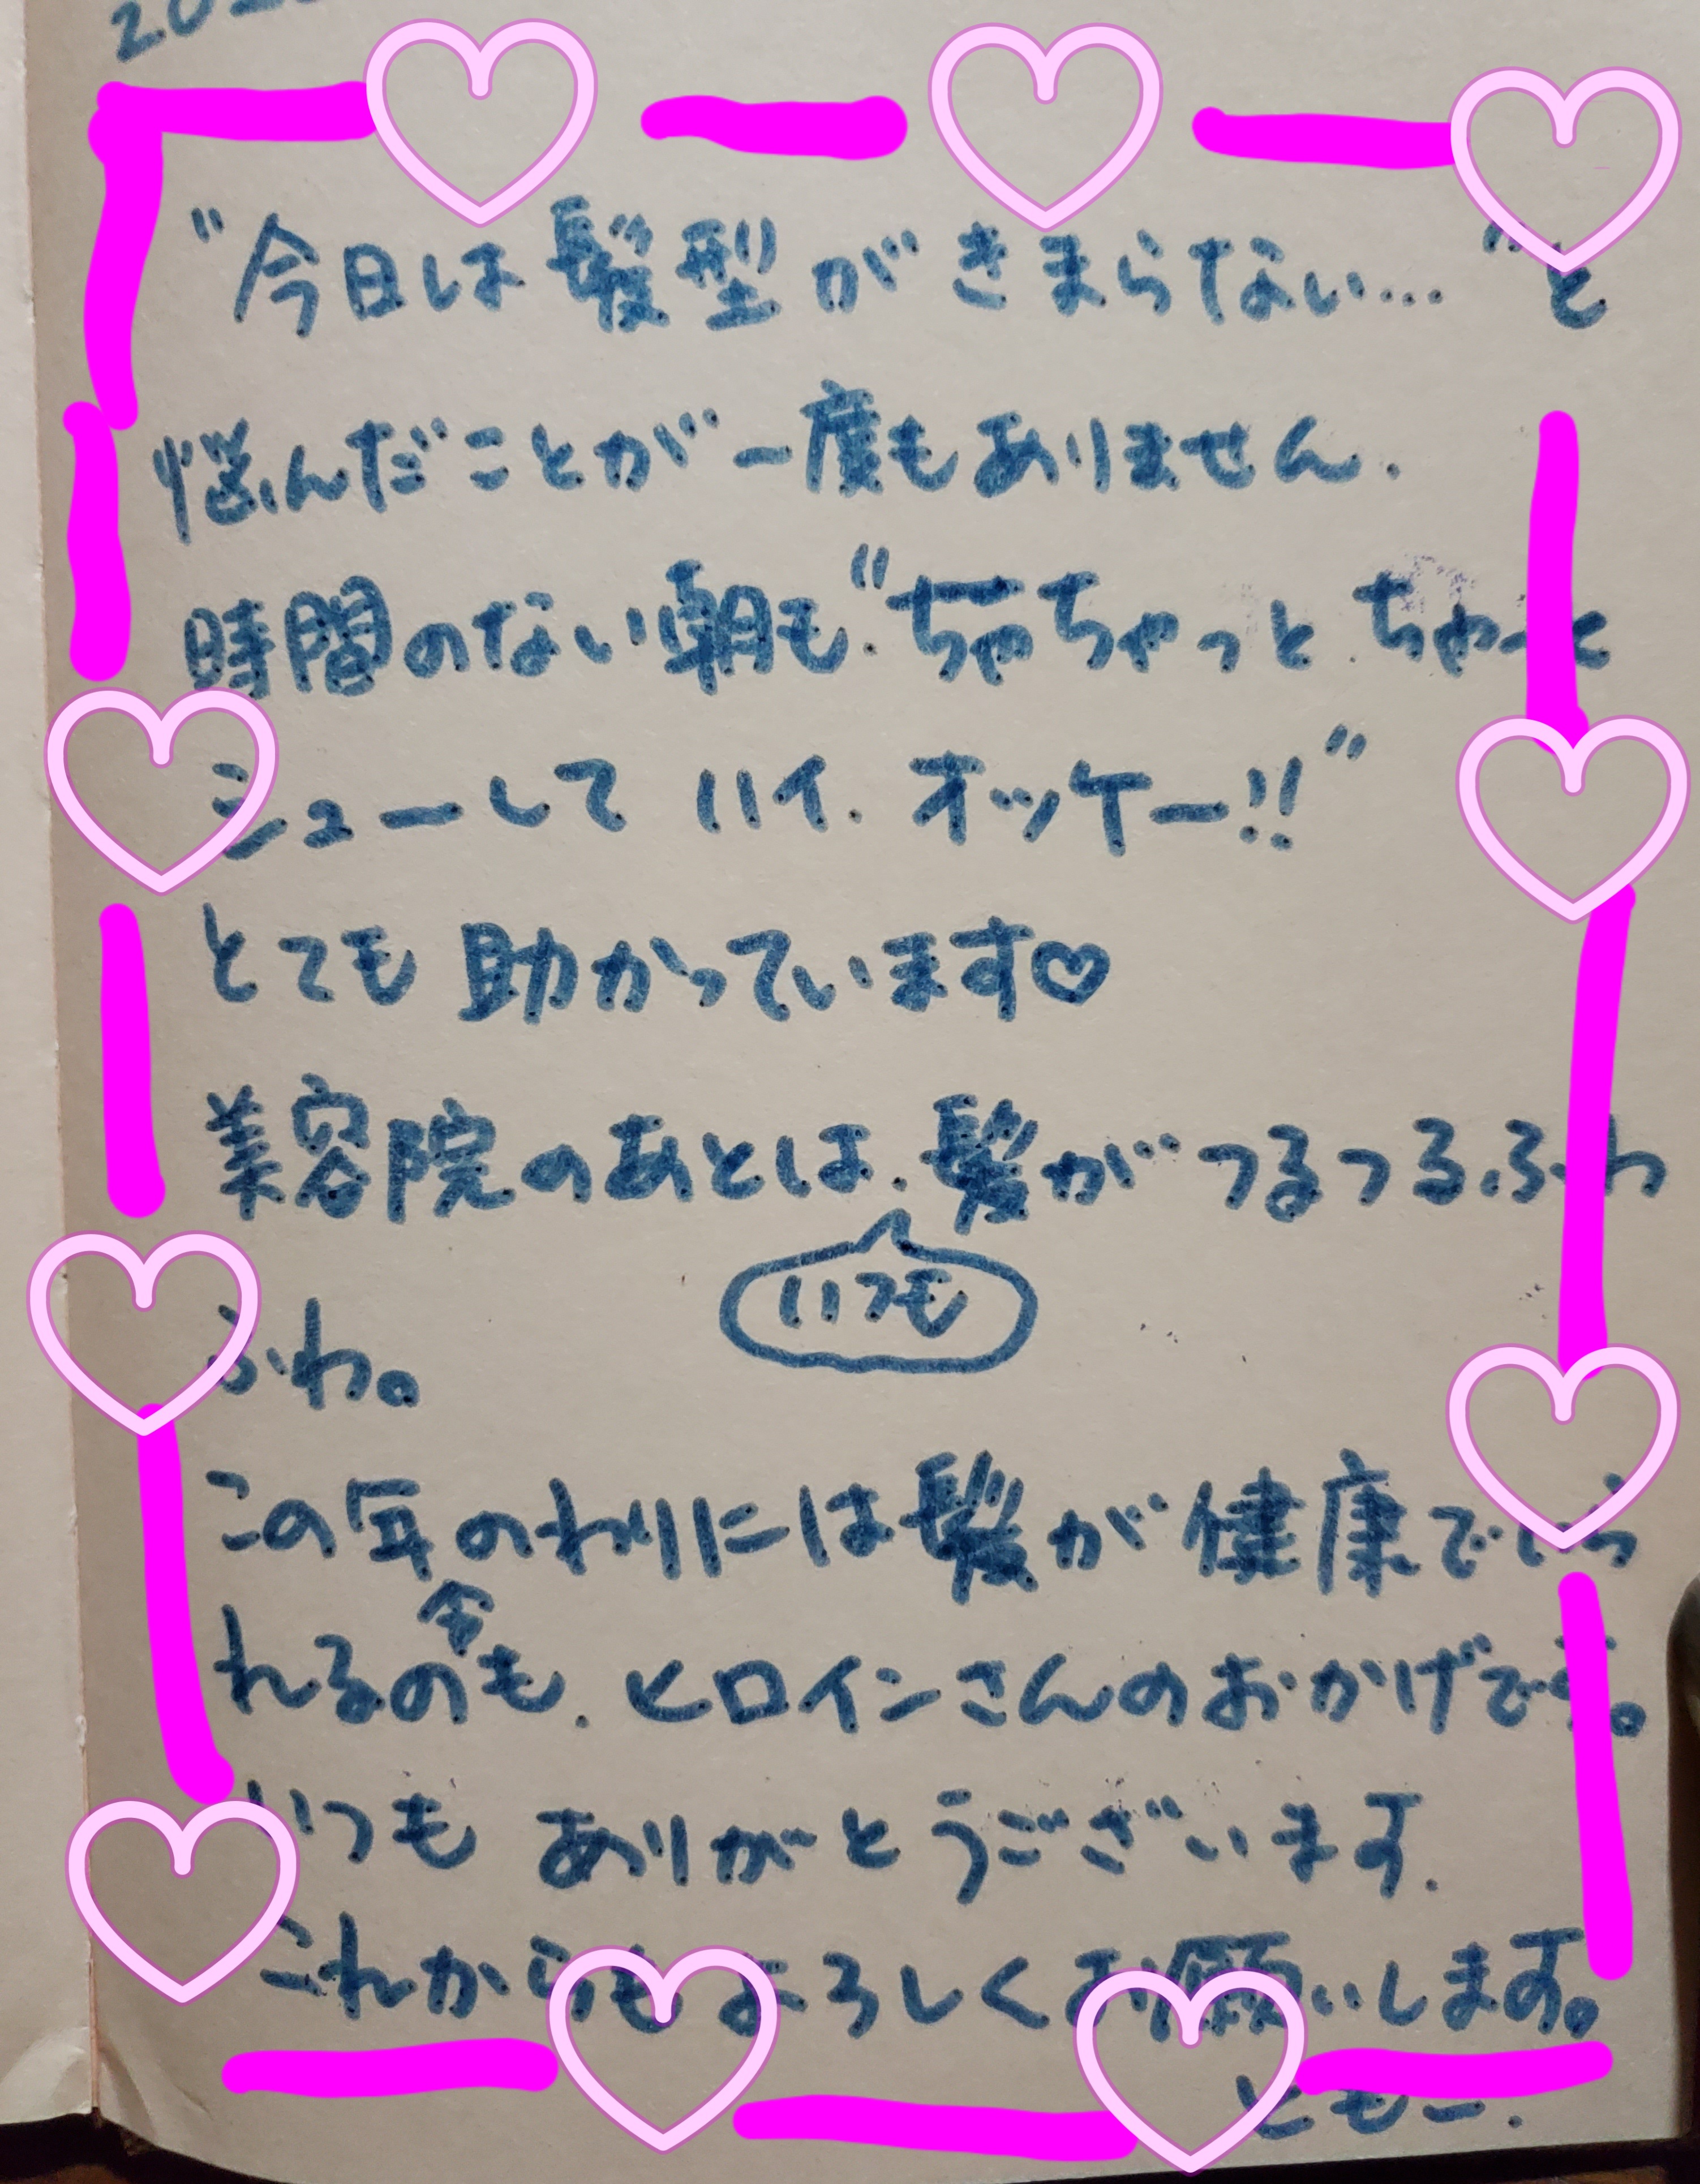 "今日は髪型がきまらない…"と
悩んだことが一度もありません.
時間のない朝も."ちゃちゃっと.ちゃーと
シューして ハイ. オッケー!!"
とても助かっています♡
美容院のあとは.髪がつるつる.ふわ
いつも
ふわ。
この年のわりには髪が健康でいら
れるのも.ヒロインさんのおかげです。
いつも ありがとうございます.
これからもよろしくお願いします。
ともー.